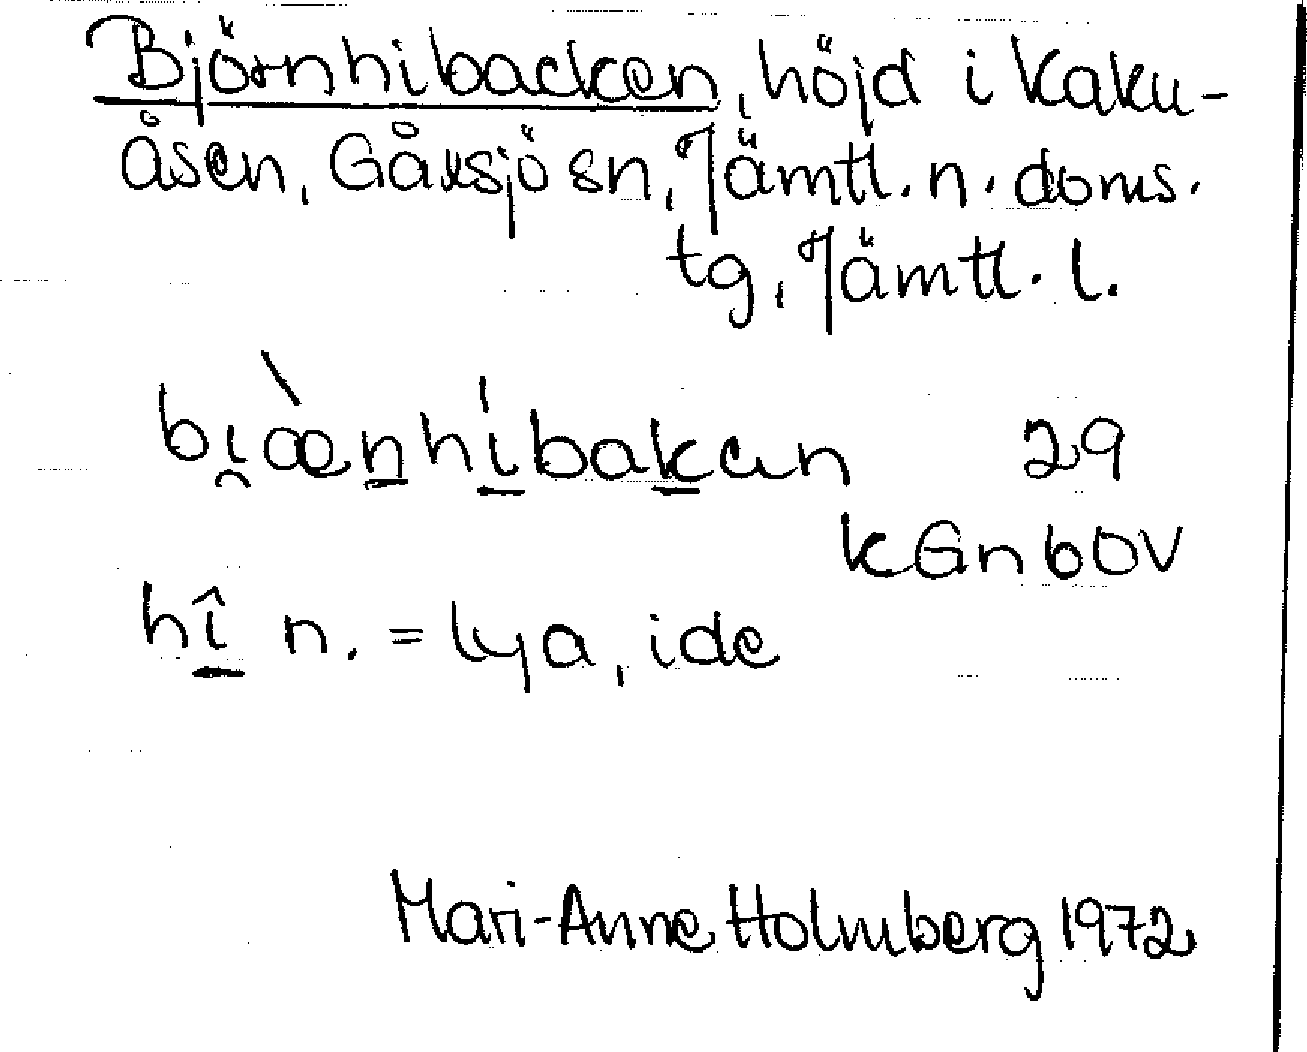 Björnhibacken, höjd i Kaku-
åsen, Gåxsjö sn, Jämtl. n. doms.
tg, Jämtl. l.
bi̯æ̀n̲hí̲bak̲an 29
kGn60V
hî̲ n. = lya, ide
Mari-Anne Holmberg 1972